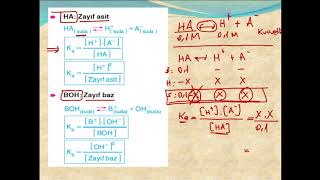 HA: Zayıf asit
HA(suda) ⇌ H⁺(suda) + A⁻(suda)
Ka = [H⁺].[A⁻] / [HA]
Ka = [H⁺]² / [Zayıf asit]
BOH: Zayıf baz
BOH(suda) ⇌ B⁺(suda) + OH⁻(suda)
Kb = [B⁺].[OH⁻] / [BOH]
Kb = [OH⁻]² / [Zayıf baz]
HA ⇌ H⁺ + A⁻
0,1M 0,1M
HA ⇌ H⁺ + A⁻
: 0,1 - -
: -X +X +X
: 0,1-X X X
Ka = [H⁺].[A⁻] / [HA] = X.X / 0,1
=